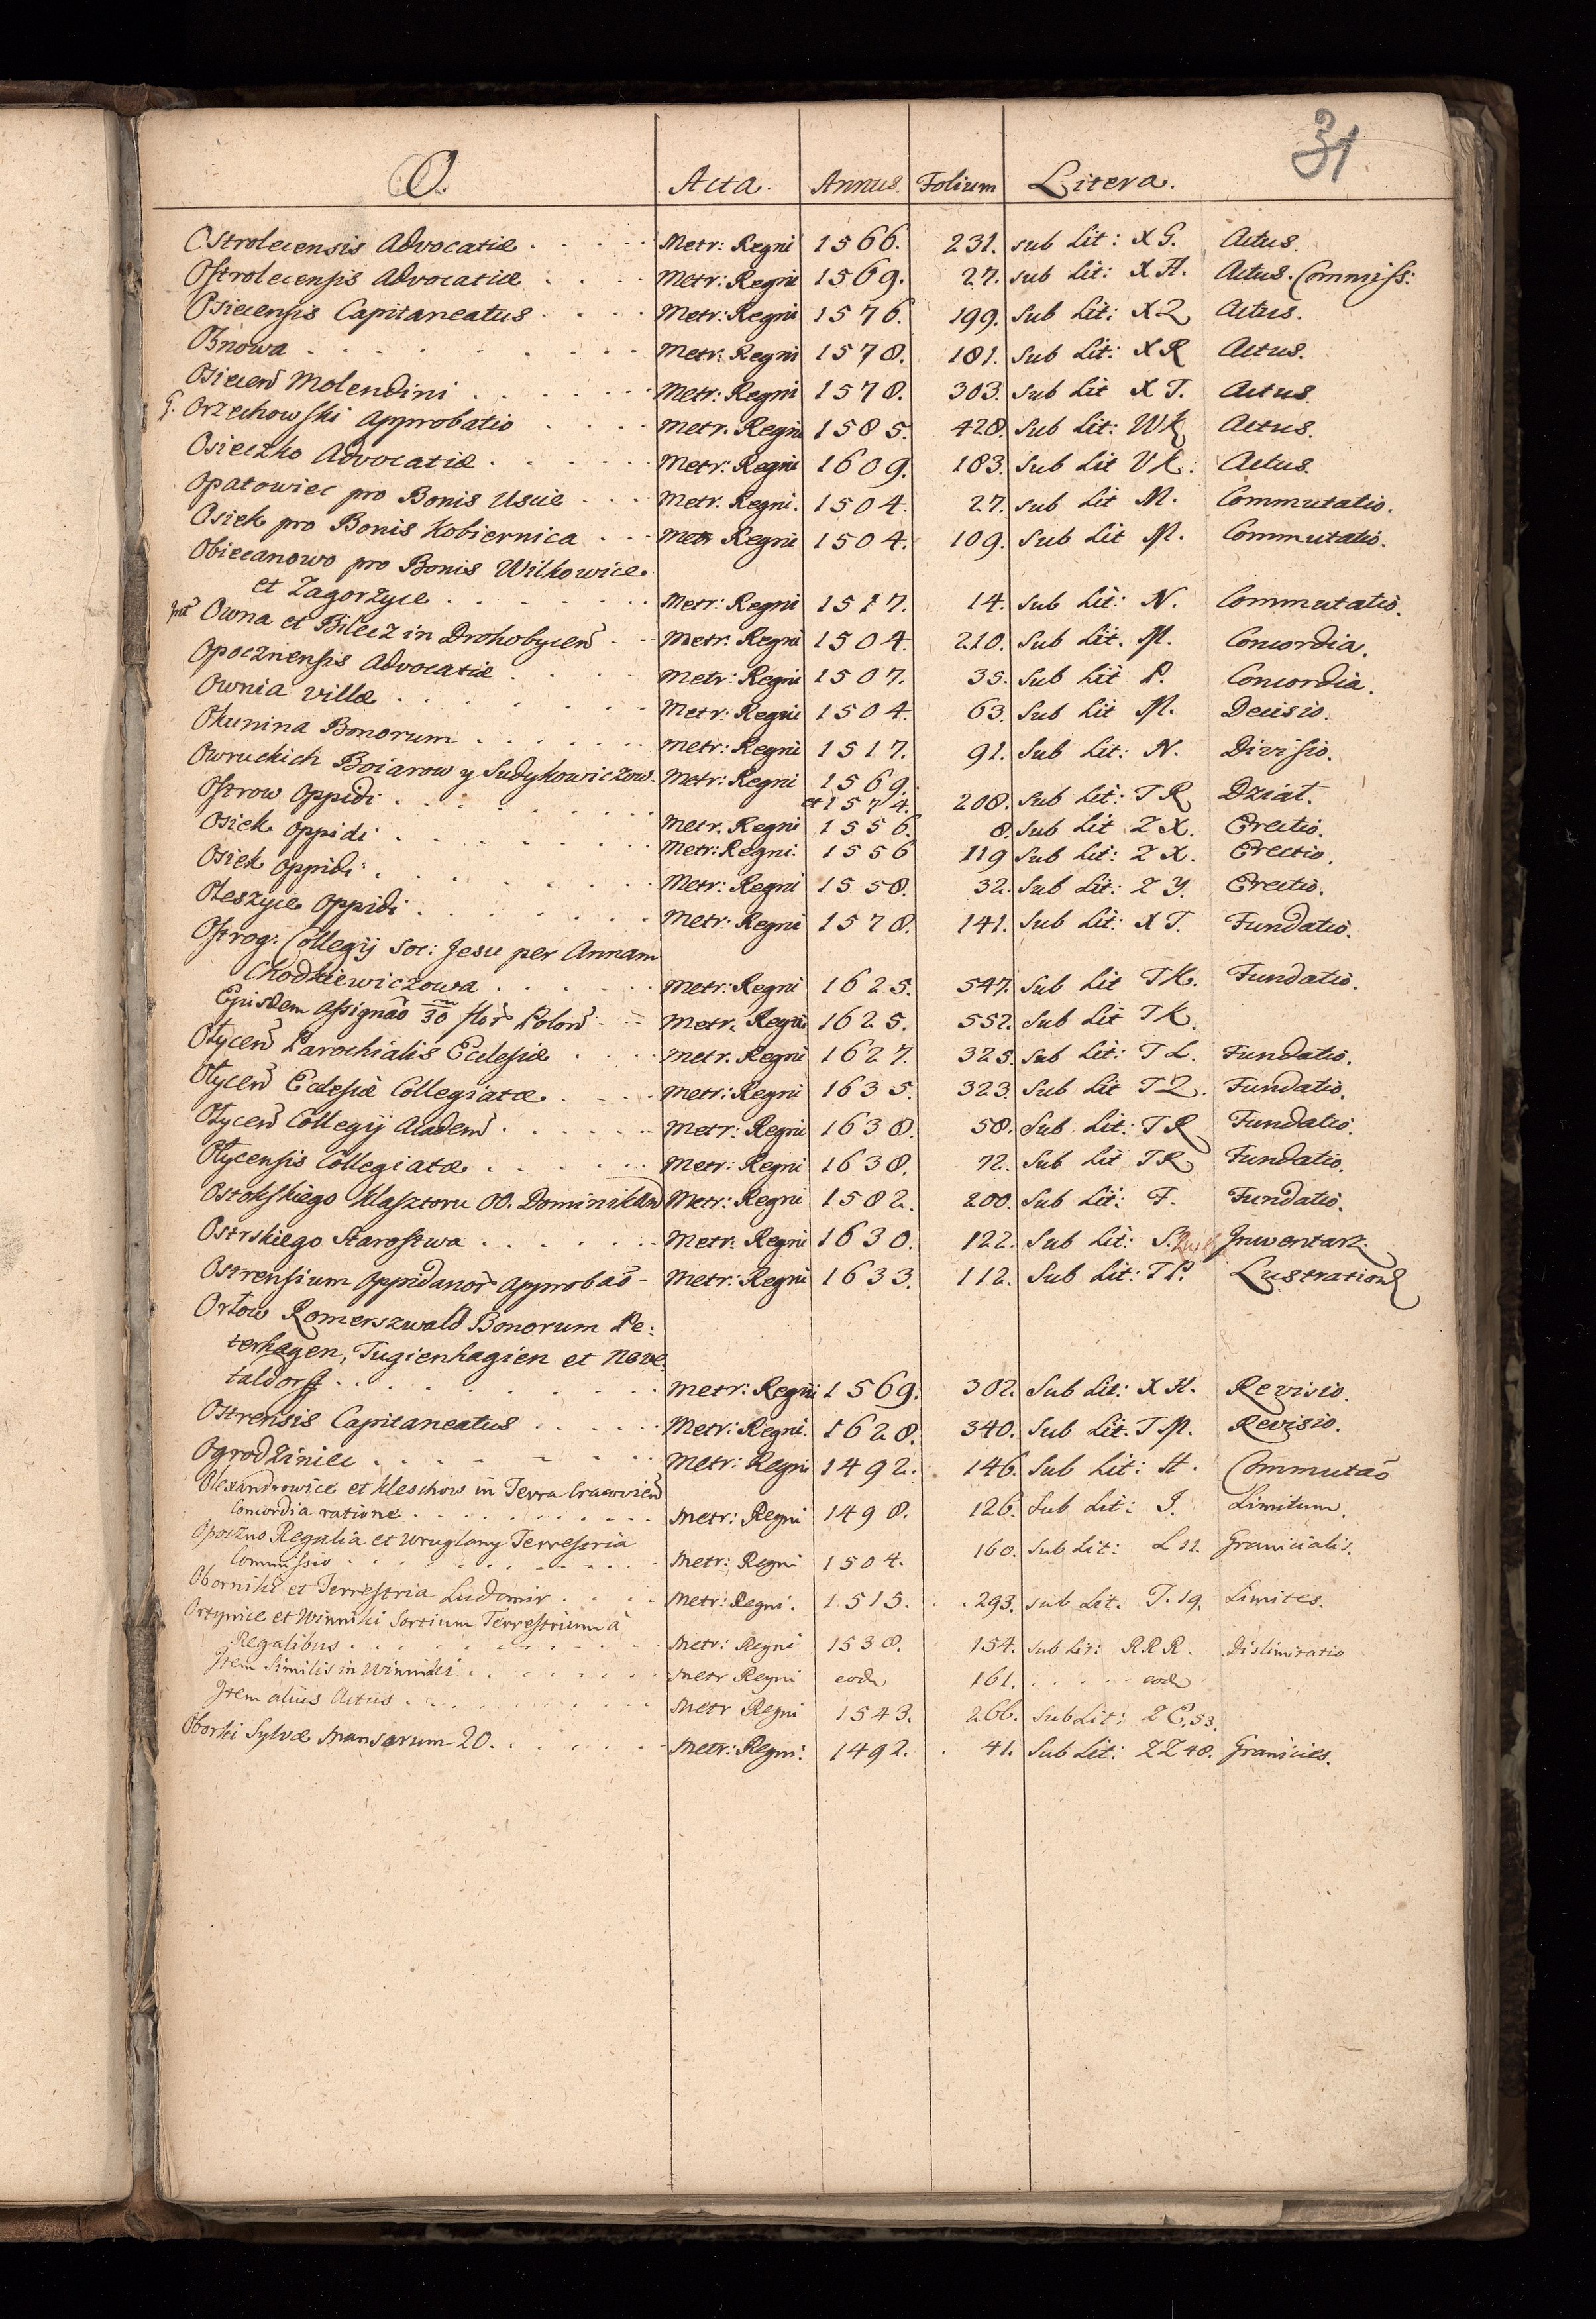 31
O. Acta. Annus Folium Litera.
Ostrolecensis Advocatiæ . . . . . Metr: Regni 1566. 231. sub Lit: XG. Actus.
Ostrolecensis Advocatiæ . . . . Metr: Regni 1569. 27. sub Lit: XH. Actus. Commiss:
Osiecensis Capitaneatus . . . . Metr: Regni 1576. 199. Sub Lit: X2 Actus.
Obnowa . . . . . . . . . Metr: Regni 1578. 181. Sub Lit: XR Actus.
Osiecen̄ Molendini . . . . . . Metr: Regni 1578. 303. Sub Lit XT. Actus.
G. Orzechowski Approbatio . . . . Metr. Regni 1585. 428. Sub Lit: WK Actus.
Osieczko Advocatiæ . . . . . . Metr: Regni 1609. 183. Sub Lit VK. Actus.
Opatowiec pro Bonis Uscie . . . . Metr. Regni. 1504. 27. Sub Lit M. Commutatio.
Osiek pro Bonis Kobiernica . . . Metr Regni 1504. 109. Sub Lit M. Commutatio.
Obiecanowo pro Bonis Wilkowice
et Zagorzyce . . . . . . . Metr: Regni 1517. 14. Sub Lit: N. Commutatio.
Owna et Bilecz in Drohobycen̄ - - Metr: Regni 1504. 210. Sub Lit. M. Concordia.
Opocznensis Advocatiæ . . . . Metr: Regni 1507. 35. Sub Lit P. Concordia.
Ownia villæ . . . . . . . Metr: Regni 1504. 63. Sub Lit M. Decisio.
Okunina Bonorum . . . . . . . Metr: Regni 1517. 91. Sub Lit: N. Divisio.
Owruckich Boiarow y Sudykowiczow. Metr: Regni 1569.
et 1574. 208. Sub Lit: TR Dział.
Ostrow Oppidi . . . . . . . . Metr. Regni 1556. 8. Sub Lit ZX. Erectio.
Osiek Oppidi . . . . . . . . Metr: Regni. 1556 119 Sub Lit: ZX. Erectio.
Osiek Oppidi . . . . . . . . Metr: Regni 1558. 32. Sub Lit: ZY. Erectio.
Oleszyce Oppidi . . . . . . . Metr: Regni 1578. 141. Sub Lit: XT. Fundatio.
Ostrog: Collegij Soc: Jesu per Annam
Chodkiewiczowa . . . . . . Metr: Regni 1625. 547. Sub Lit TK. Fundatio.
Ejusdem Assignāo 30 m flor̄ Polon̄ - = Metr. Regni 1625. 552. Sub Lit TK.
Olycen̄ Parochialis Ecclesiæ . . . . Metr. Regni 1627. 325. Sub Lit: TL. Fundatio.
Olycen̄ Ecclesiæ Collegiatæ . . . . Metr: Regni 1635. 323. Sub Lit TZ. Fundatio.
Olycen̄ Collegij Academ̄ . . . . . . Metr: Regni 1638. 58. Sub Lit: TR Fundatio.
Olycensis Collegiatæ . . . . . . Metr: Regni 1638. 72. Sub Lit TR Fundatio.
Metr: Regni 1582. 200. Sub Lit: F. Fundatio.
Ostrskiego Starostwa . . . . . . Metr. Regni 1630. 122. Sub Lit: S. Inwentarz.
Ostrensium Oppidanor̄ Approbāo - Metr: Regni 1633. 112. Sub Lit: TP. Lustrationē
Orłow Romerszwald Bonorum Pe:
terhagen, Tugienhagien et Neve:
taldorff . . . . . . . . . Metr: Regni 1569. 302. Sub Lit: XH. Revisio.
Ostrensis Capitaneatus . . . . . Metr: Regni. 1628. 340. Sub Lit. TM. Revisio.
Ogrodziniec . . . . . . . . Metr: Regni 1492. 146. Sub Lit: H. Commutāo
Olexandrowice et Kleschow in Terra Cracovien̄
Concordia ratione . . . . . . . . . . Metr: Regni 1498. 126. Sub Lit: J. Limitum.
Opoczno Regalia et Wruglany Terrestria
Commissio . . . . . . . . . . Metr: Regni 1504. 160. Sub Lit: L 11. Granicialis.
Oborniki et Terrestria Ludomir . . . . Metr: Regni. 1515. . . 293. Sub Lit. T. 19. Limites.
Ortynice et Winniki Sortium Terrestrium à
Regalibus . . . . . . . . . . . Metr: Regni 1538. 154. Sub Lit: RRR. Dislimitatio
Item Similis in Winniki . . . . . . . Metr Regni eod 161. . . . . . eod
Item alius Actus . . . . . . . . . Metr Regni 1543. 266. Sub Lit: ZC, 53.
Oborki Sylvæ Mansarum 20. . . . . . . Metr: Regni: 1492. . 41. Sub Lit: ZZ 48. Granicies.